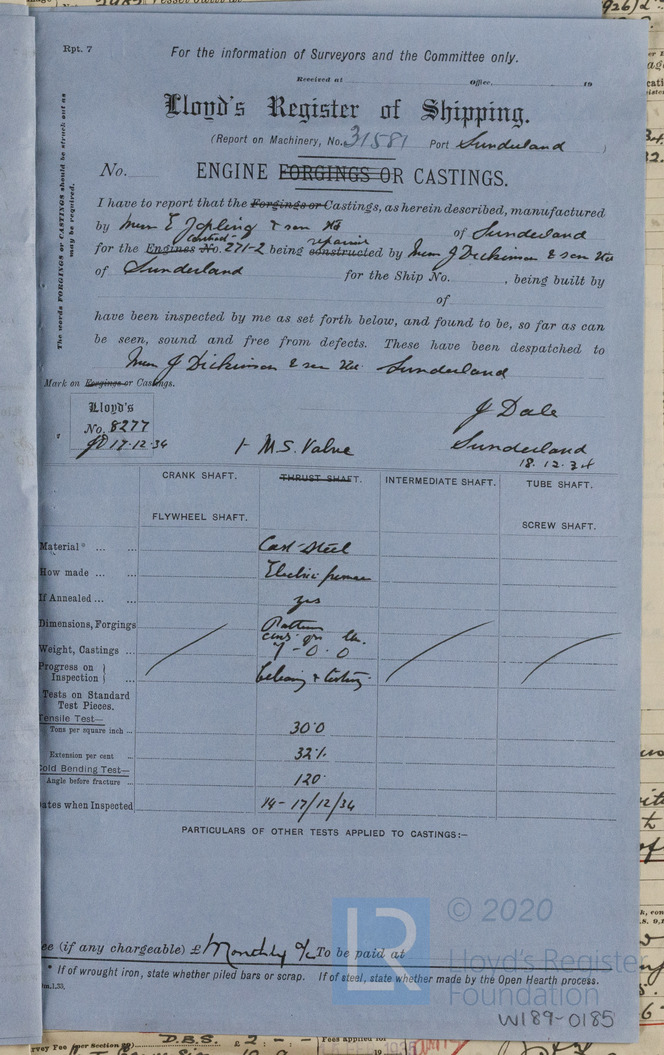 Rpt. 7
For the information of Surveyors and the Committee only.
Received at Office, 19
Lloyd's Register of Shipping.
(Report on Machinery, No. 31581 Port Sunderland )
No. ENGINE FORGINGS OR CASTINGS.
The words FORGINGS or CASTINGS should be struck out as
may be required.
I have to report that the Forgings or Castings, as herein described, manufactured
by Messrs E Jopling & son Ltd of Sunderland
for the Engines contract No. 271-2 being constructed repaired by Messrs J Dickinson & son Ltd
of Sunderland for the Ship No. , being built by
of
have been inspected by me as set forth below, and found to be, so far as can
be seen, sound and free from defects. These have been despatched to
Messrs J Dickinson & son Ltd Sunderland
Mark on Forgings or Castings.
Lloyd's
No. 8277
JD 17.12.34
1 M.S. Valve
J Dale
Sunderland
18.12.34
CRANK SHAFT. THRUST SHAFT. INTERMEDIATE SHAFT. TUBE SHAFT.
FLYWHEEL SHAFT. SCREW SHAFT.
Material* ... ... Cast Steel
How made ... ... Electric furnace
If Annealed ... ... yes
Dimensions, Forgings Pattern
cwts qrs lbs.
Weight, Castings ... 7 - 0 . 0
Progress on
Inspection ... & testing
Tests on Standard
Test Pieces.
Tensile Test—
Tons per square inch ... 30.0
Extension per cent ... 32%
Cold Bending Test—
Angle before fracture ... 120°
ates when Inspected 14 - 17/12/34
PARTICULARS OF OTHER TESTS APPLIED TO CASTINGS:—
ee (if any chargeable) £ Monthly a/c To be paid at
* If of wrought iron, state whether piled bars or scrap. If of steel, state whether made by the Open Hearth process.
© 2020
LR
Lloyd's Register
Foundation
W189-0185
vey Fee (per Section 29) D.B.S. £ 2 : - : - Fees applied for
19